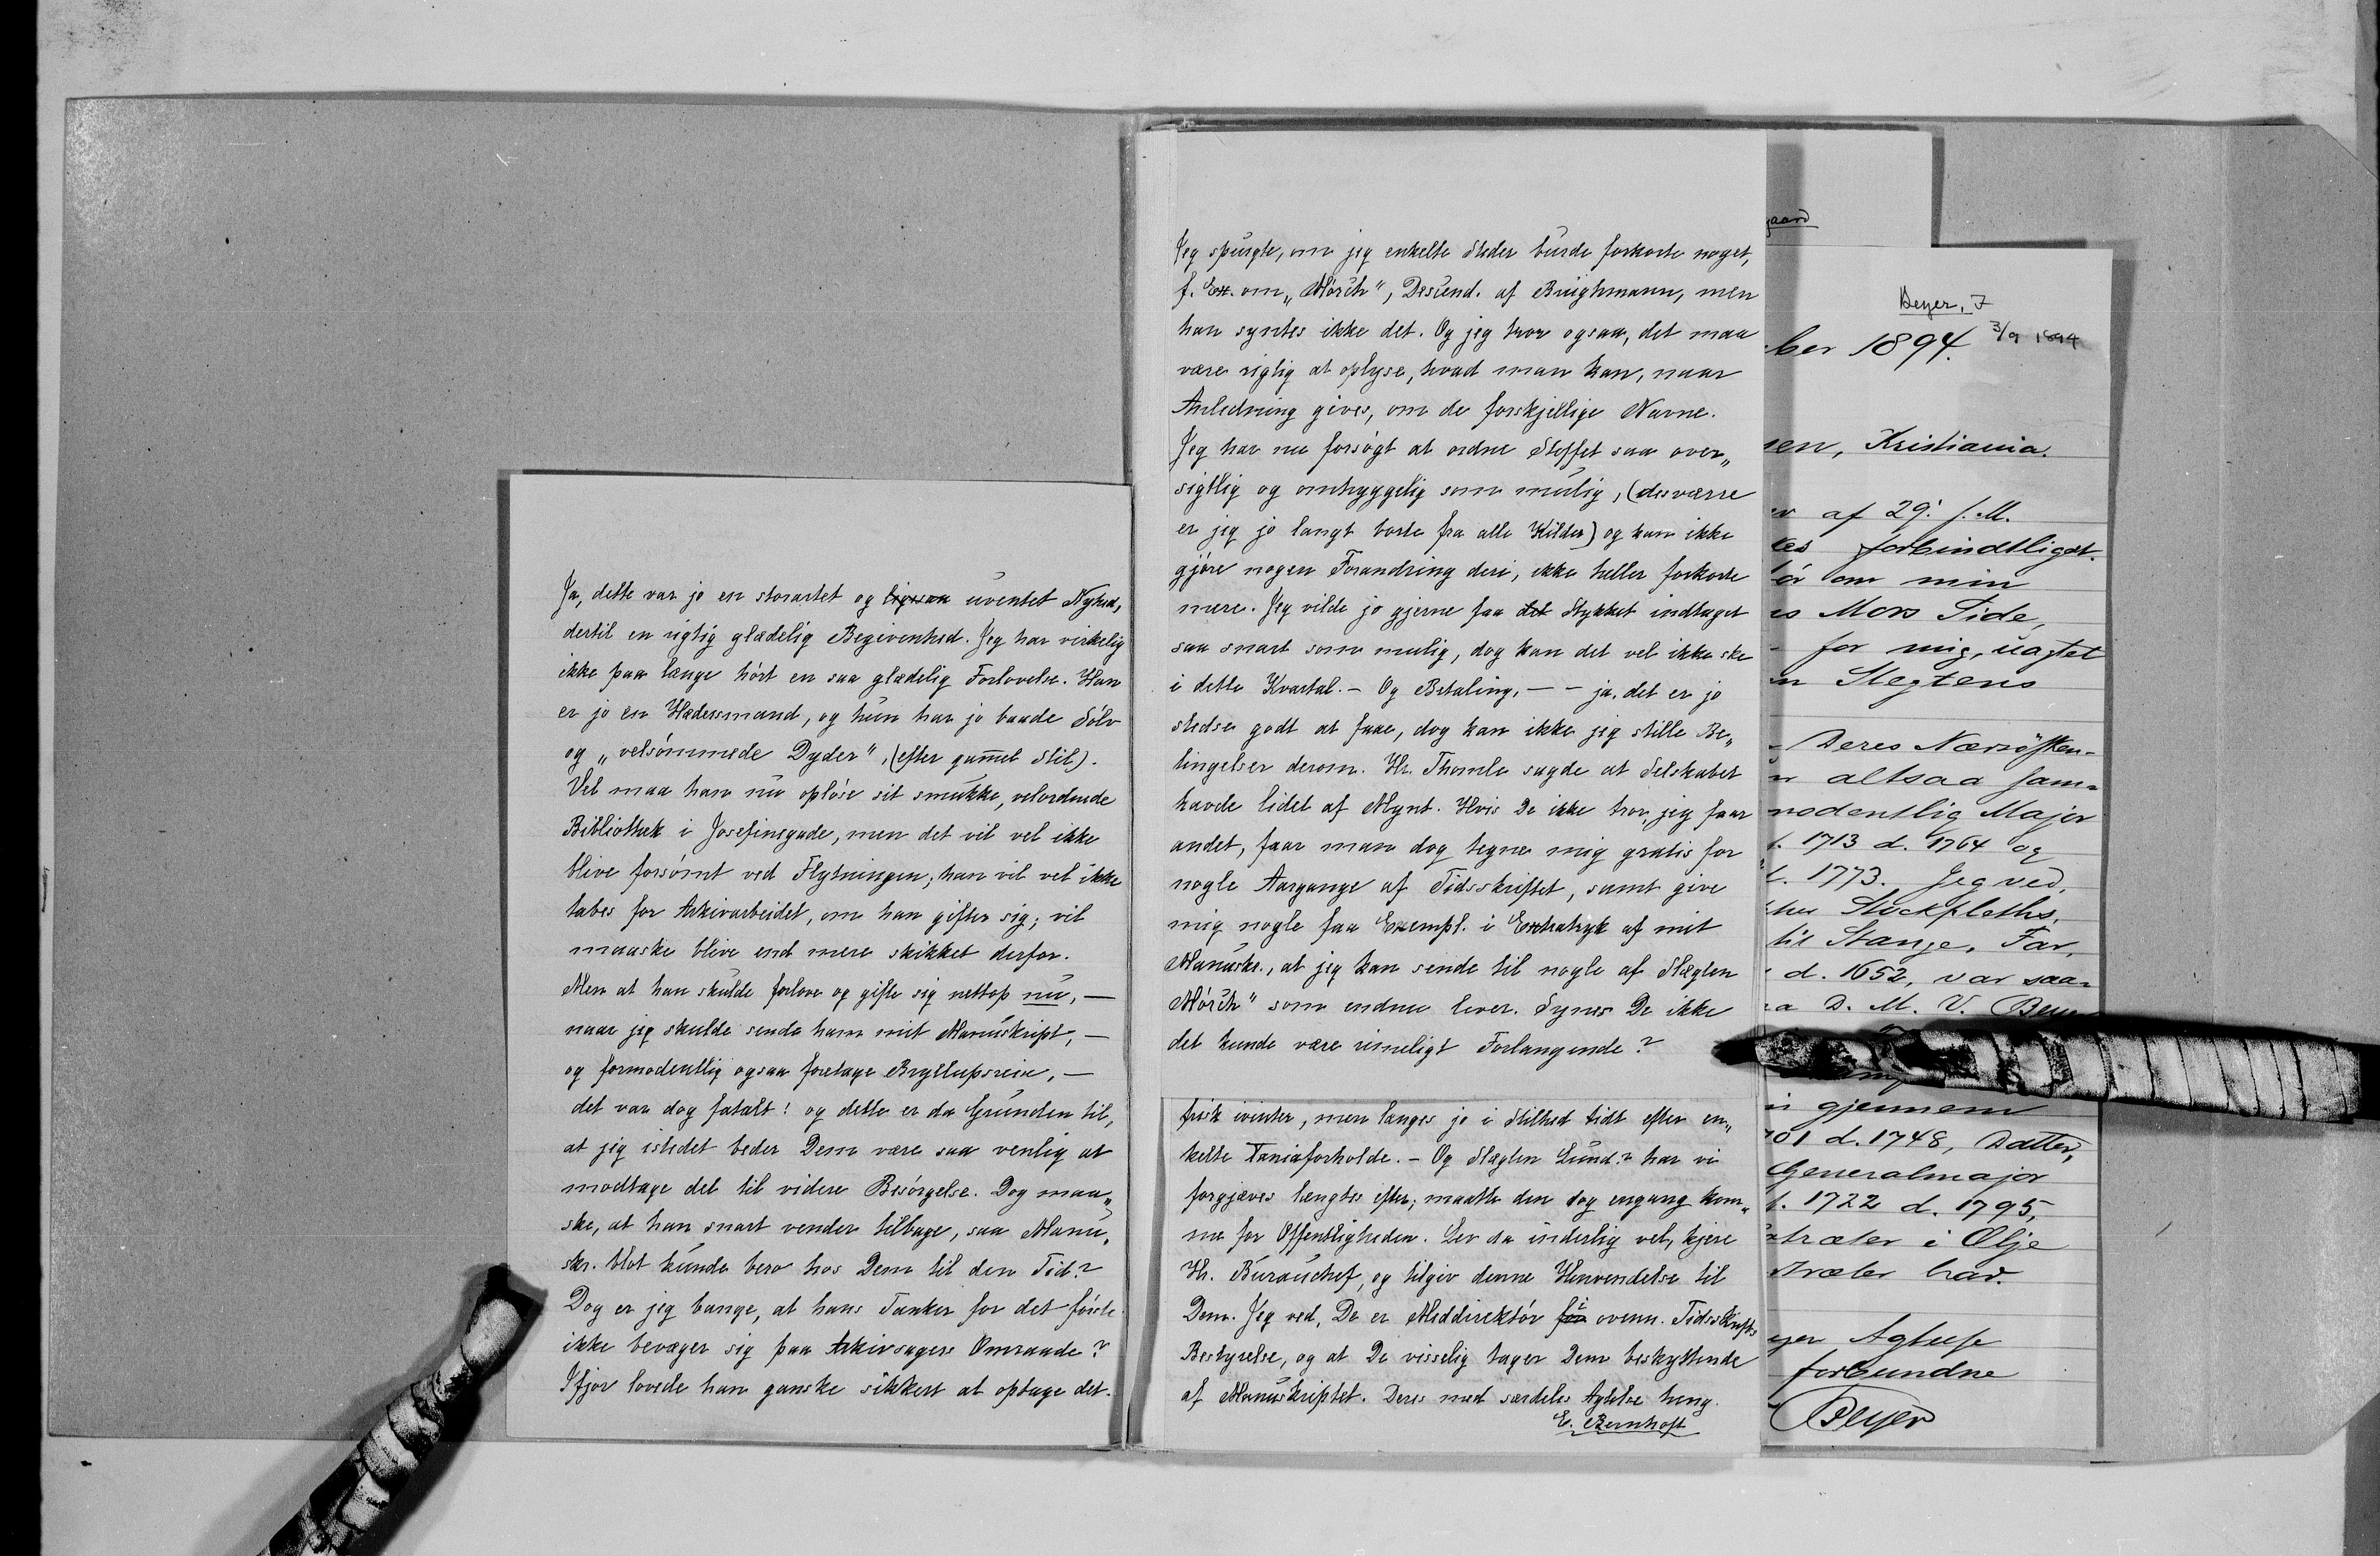 Ja, dette var jo en storartet og ligesaa uventet Nyhed,
dertil en rigtig glædelig Begivenhed. Jeg har virkelig
ikke paa længe hört en saa glædelig Forlovelse. Han
er jo en Hædersmand, og hun har jo baade Sölv
og „velsömmede Dyder", (efter gam̄el Stil).
Vel maa han nu oplöse sit smukke, velordnede
Bibliothek i Josefinegade, men det vil vel ikke
blive forsömt ved Flytningen; han vil vel ikke
tabes for Arkivarbeidet, om han gifter sig; vil
maaske blive end mere skikket derfor.
Men at han skulde forlove og gifte sig nettop nu, —
naar jeg skulde sende ham mit Manuskript, —
og formodentlig ogsaa foretage Bryllupsreise, —
det var dog fatalt! og dette er da Grunden til,
at jeg istedet beder Dem være saa venlig at
modtage det til videre Besörgelse. Dog maa„
ske, at han snart vender tilbage, saa Manu„
skr. blot kunde bero hos Dem til den Tid?
Dog er jeg bange, at hans Tanker for det förste
ikke bevæger sig paa Arkivsagers Omraade?
Ifjor lovede han ganske sikkert at optage det.
Jeg spurgte, om jeg enkelte Steder burde forkorte noget,
f. Ex. om „Mörch", Descend. af Brüghmann, men
han syntes ikke det. Og jeg tror ogsaa, det maa
være rigtig at oplyse, hvad man kan, naar
Anledning gives, om de forskjellige Navne.
Jeg har nu forsögt at ordne Stoffet saa over„
sigtlig og omhyggelig som mulig, (desværre
er jeg jo langt borte fra alle Kilder) og kan ikke
gjöre nogen Forandring deri, ikke heller forkorte
mere. Jeg vilde jo gjerne faa det Stykket indtaget
saa snart som mulig, dog kan det vel ikke ske
i dette Kvartal. — Og Betaling, — — ja, det er jo
stedse godt at faae, dog kan ikke jeg stille Be„
tingelser derom. Hr. Thomle sagde at Selskabet
havde lidet af Mynt. Hvis De ikke tror, jeg faar
andet, faar man dog tegne mig gratis for
nogle Aargange af Tidsskriftet, samt give
mig nogle faa Exempl. i Extratryk af mit
Manuskr., at jeg kan sende til nogle af Slægten
Mörch" som endnu lever. Synes De ikke
det kunde være rimeligt Forlangende?
frisk ivinter, men længes jo i Stilhed tidt efter en„
kelte Taniaforholde. — Og Slægten Lund? har vi
forgjæves længtes efter; maatte den dog engang kom„
me for Offentligheden. Lev da inderlig vel, kjere
Hr. Burauchef, og tilgiv denne Henvendelse til
Dem. Jeg ved, De er Meddirektör for i ovenn. Tidsskrifts
Bestyrelse, og at De visselig tager Dem beskyttende
af Manuskriptet. Deres med særdeles Agtelse heng.
E. Bernhoft
gaard
Beyer, F
3/9 1894
ber 1894.
sen, Kristiania.
af 29' f. M.
tes forbindtligst.
ör om min
es Mors Side,
for mig, uagtet
Slegtens
Deres Nærsösken-
altsaa sam=
modentlig Major
f. 1713 d. 1764 og
1773. Jeg ved,
Stockfleths,
til Stange. Far,
d. 1652, var saa=
D. M. V.
gjennem
701 d. 1748, Datter,
Generalmajor
f. 1722 d. 1795,
træter i Olje
træter har.
Agtelse
forbundne
Beyer